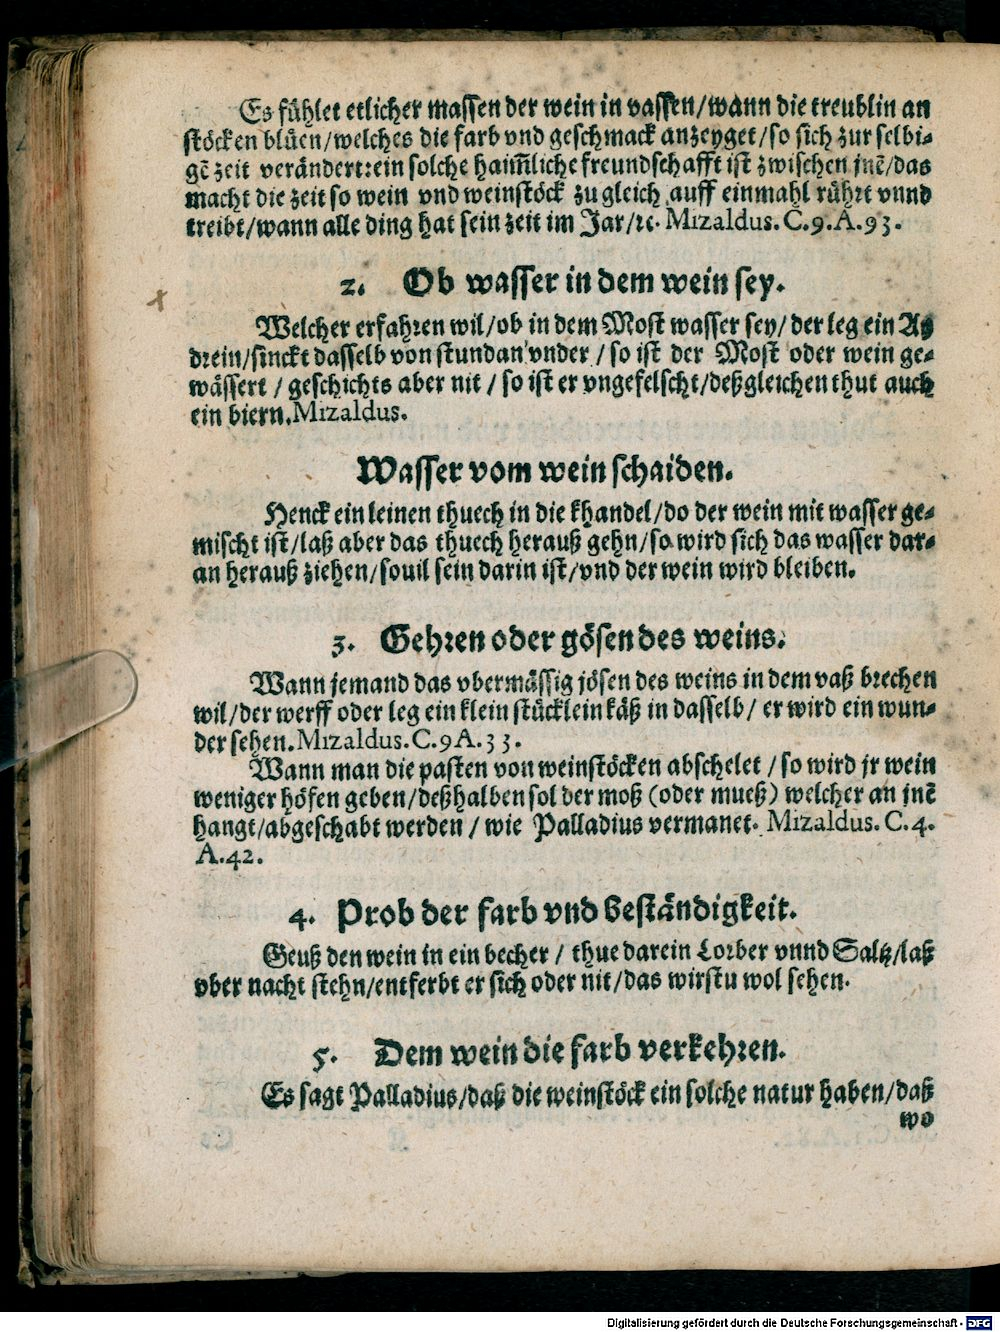 Es fühlet etlicher massen der wein in vassen/wann die treublin an
stöcken blüen/welches die farb vnd geschmack anzeyget/so sich zur selbi-
gē zeit verändert:ein solche haim̃liche freundschafft ist zwischen jnē/das
macht die zeit so wein vnd weinstöck zu gleich auff einmahl rührt vnnd
treibt/wann alle ding hat sein zeit im Jar/ꝛc. Mizaldus. C. 9. A. 93.
2. Ob wasser in dem wein sey.
Welcher erfahren wil/ob in dem Most wasser sey/der leg ein Ay
drein/sinckt dasselb von stundan vnder/so ist der Most oder wein ge-
wässert/geschichts aber nit/so ist er vngefelscht/deßgleichen thut auch
ein biern. Mizaldus.
Wasser vom wein schaiden.
Henck ein leinen thuech in die khandel/do der wein mit wasser ge-
mischt ist/laß aber das thuech herauß gehn/so wird sich das wasser dar-
an herauß ziehen/souil sein darin ist/vnd der wein wird bleiben.
3. Gehren oder gösen des weins.
Wann jemand das vbermässig jösen des weins in dem vaß brechen
wil/der werff oder leg ein klein stücklein käß in dasselb/er wird ein wun-
der sehen. Mizaldus. C. 9 A. 33.
Wann man die pasten von weinstöcken abschelet/so wird jr wein
weniger höfen geben/deßhalben sol der moß (oder mueß) welcher an jnē
hangt/abgeschabt werden/wie Palladius vermanet. Mizaldus. C. 4.
A. 42.
4. Prob der farb vnd beständigkeit.
Geuß den wein in ein becher/thue darein Lorber vnnd Saltz/laß
vber nacht stehn/entferbt er sich oder nit/das wirstu wol sehen.
5. Dem wein die farb verkehren.
Es sagt Palladius/daß die weinstöck ein solche natur haben/daß
wo
Digitalisierung gefördert durch die Deutsche Forschungsgemeinschaft - DFG